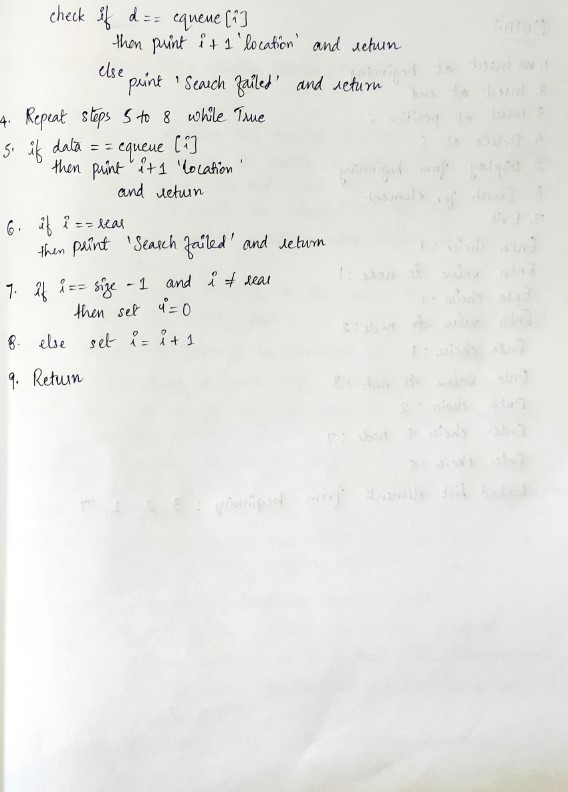 check if d == cqueue [i]
then print i + 1 'location' and return
else
print 'Search failed' and return
4. Repeat steps 5 to 8 while True
5. if data == cqueue [i]
then print i+1 'location'
and return
6. if i == rear
then print 'Search failed' and return
7. if i == size - 1 and i ≠ rear
then set i = 0
8. else set i = i + 1
9. Return